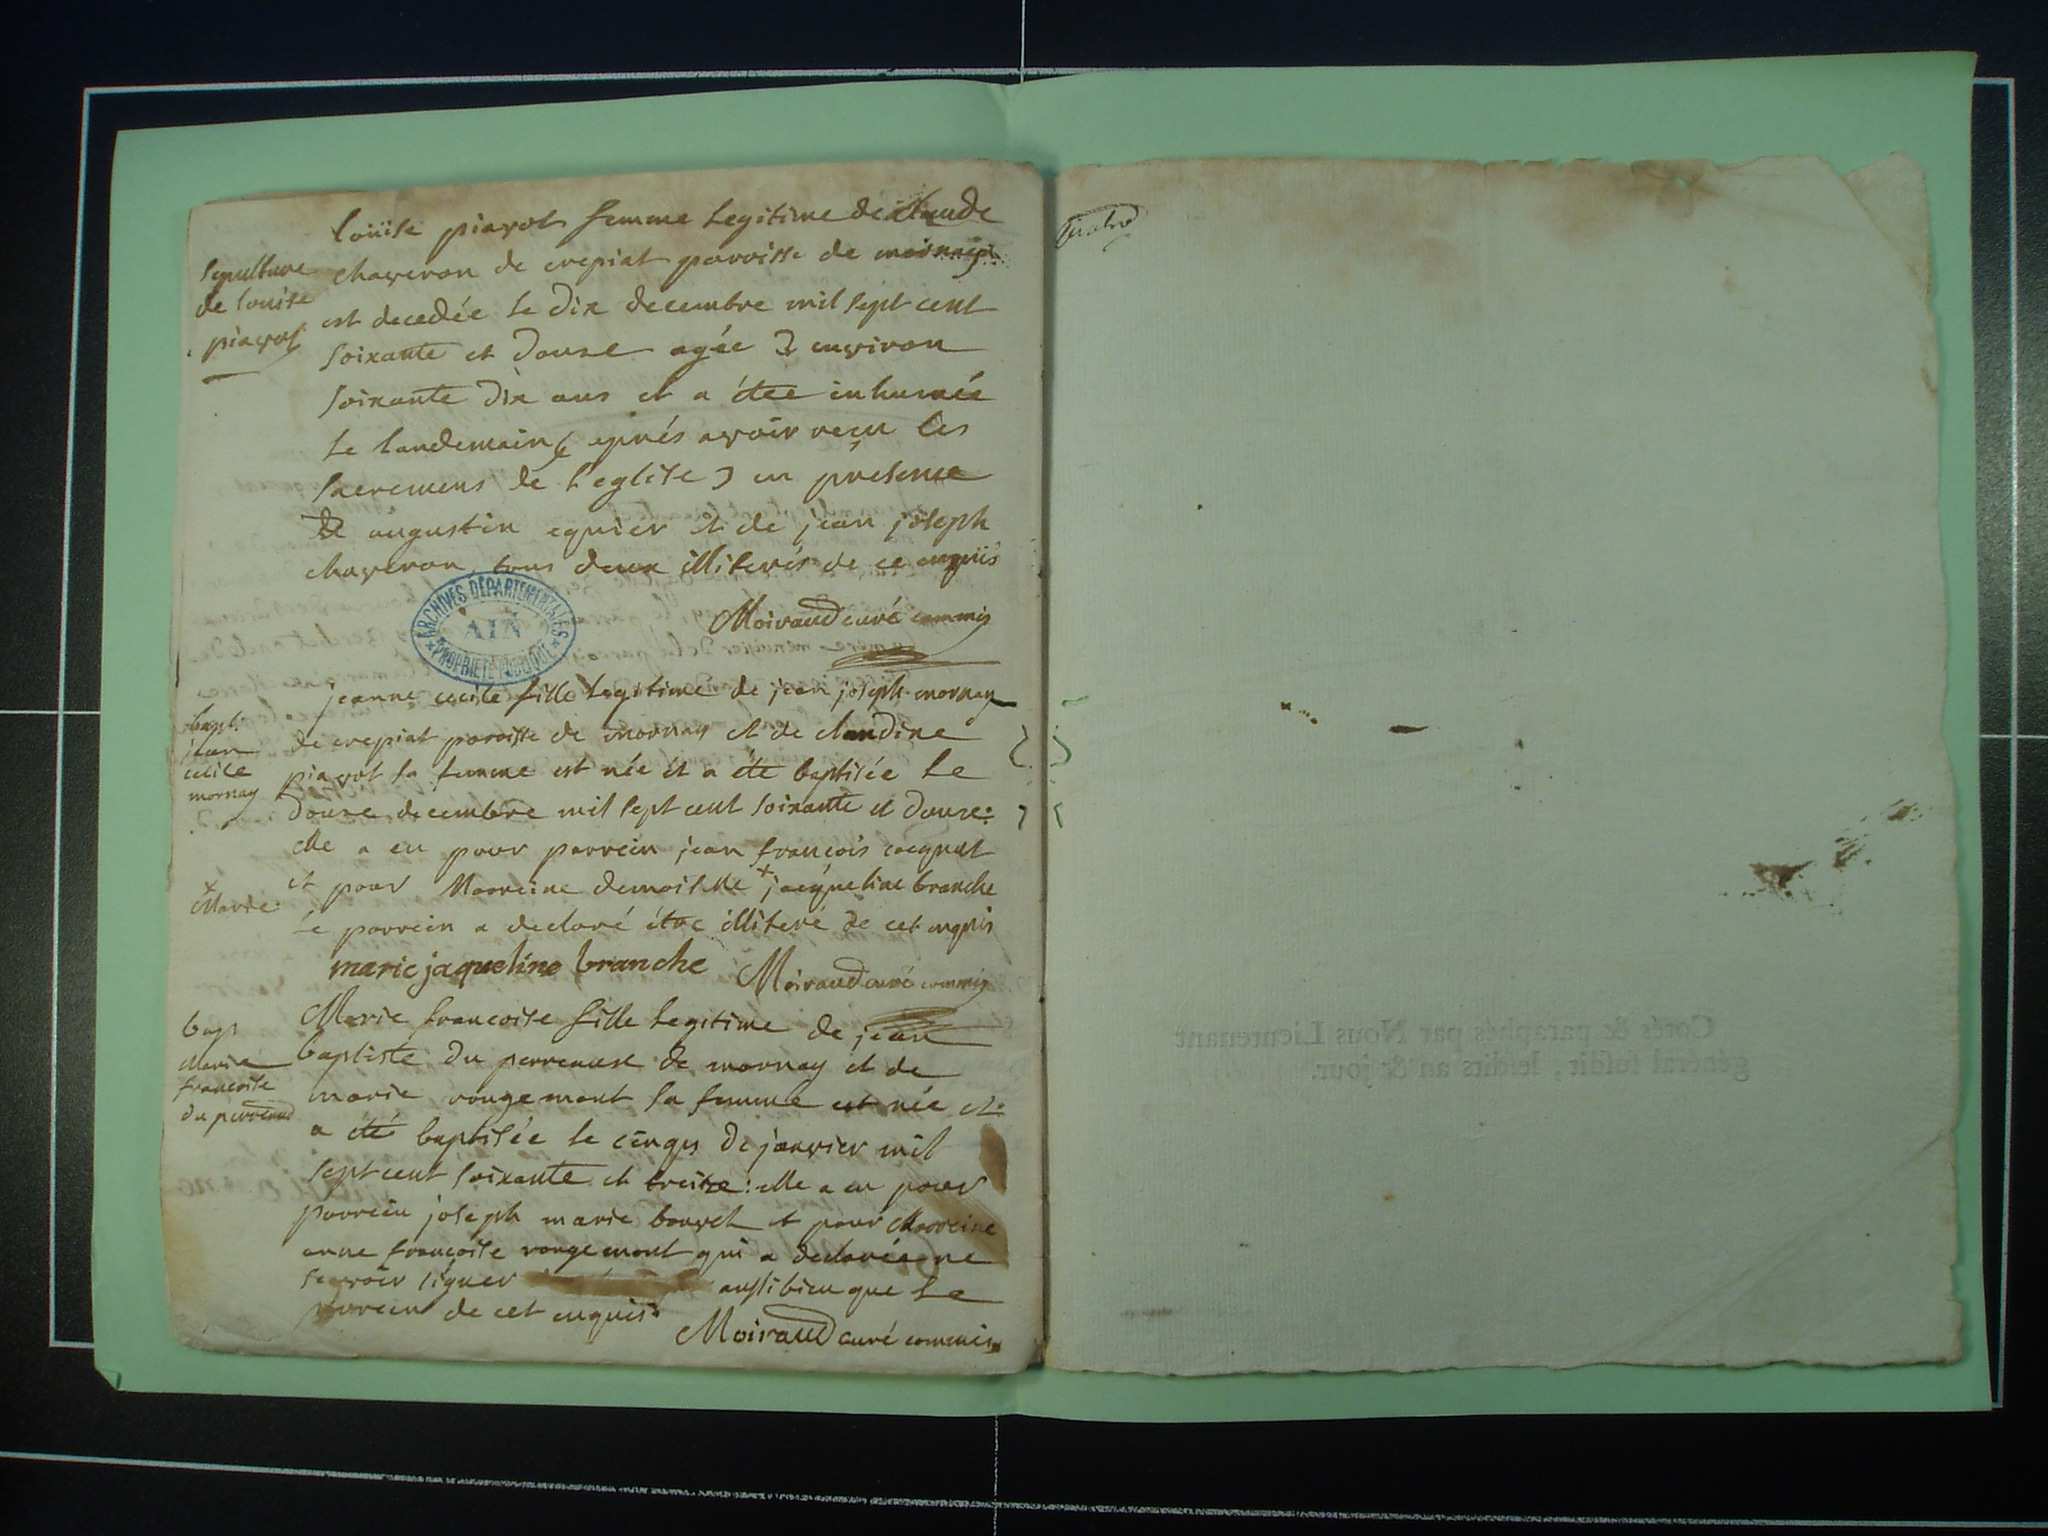 louise piavot femme legitime de claude
sepulture
de louise
piavot
chaveron de crepiat paroisse de mornay
est decedée le dix decembre mil sept cent
soixante et douse agée d environ
soixante dix ans et a étee inhumée
le landemain ( aprés avoir reçu les
sacremens de l'eglise ) en présence
de augustin equier et de jean joseph
chaveron tous deux illiterés de ce enquis
Moiraud curé commis
ARCHIVES DÉPARTEMENTALES
AIN
PROPRIÉTÉ PUBLIQUE
bapt.
jean
cecile
mornay
jeanne cecile fille legitime de jean joseph mornay
de crepiat paroisse de mornay et de claudine
piavot sa femme est née et a éte baptisée le
douse decembre mil sept cent soixante et douse:
elle a eu pour parrein jean françois
et pour Marreine demoiselle + jacqueline branche
+ Marie
le parrein a declaré étre illiteré de cet enquis
marie jaqueline branche
Moiraud curé commis
bapt
Marie
francoise
du perreaud
Marie francoise fille legitime de jean
baptiste du perreaux de mornay et de
marie rougemont sa femme est née et
a été baptisée le cinqs de janvier mil
sept cent soixante et treize: elle a eu pour
parrein joseph marie et pour Marreine
anne françoise rougemont qui a declarée ne
scavoir signer aussi bien que le
parrein de cet enquis
Moiraud curé commis
Cotés & paraphés par Nous Lieutenant
général susdit, lesdits an & jour.